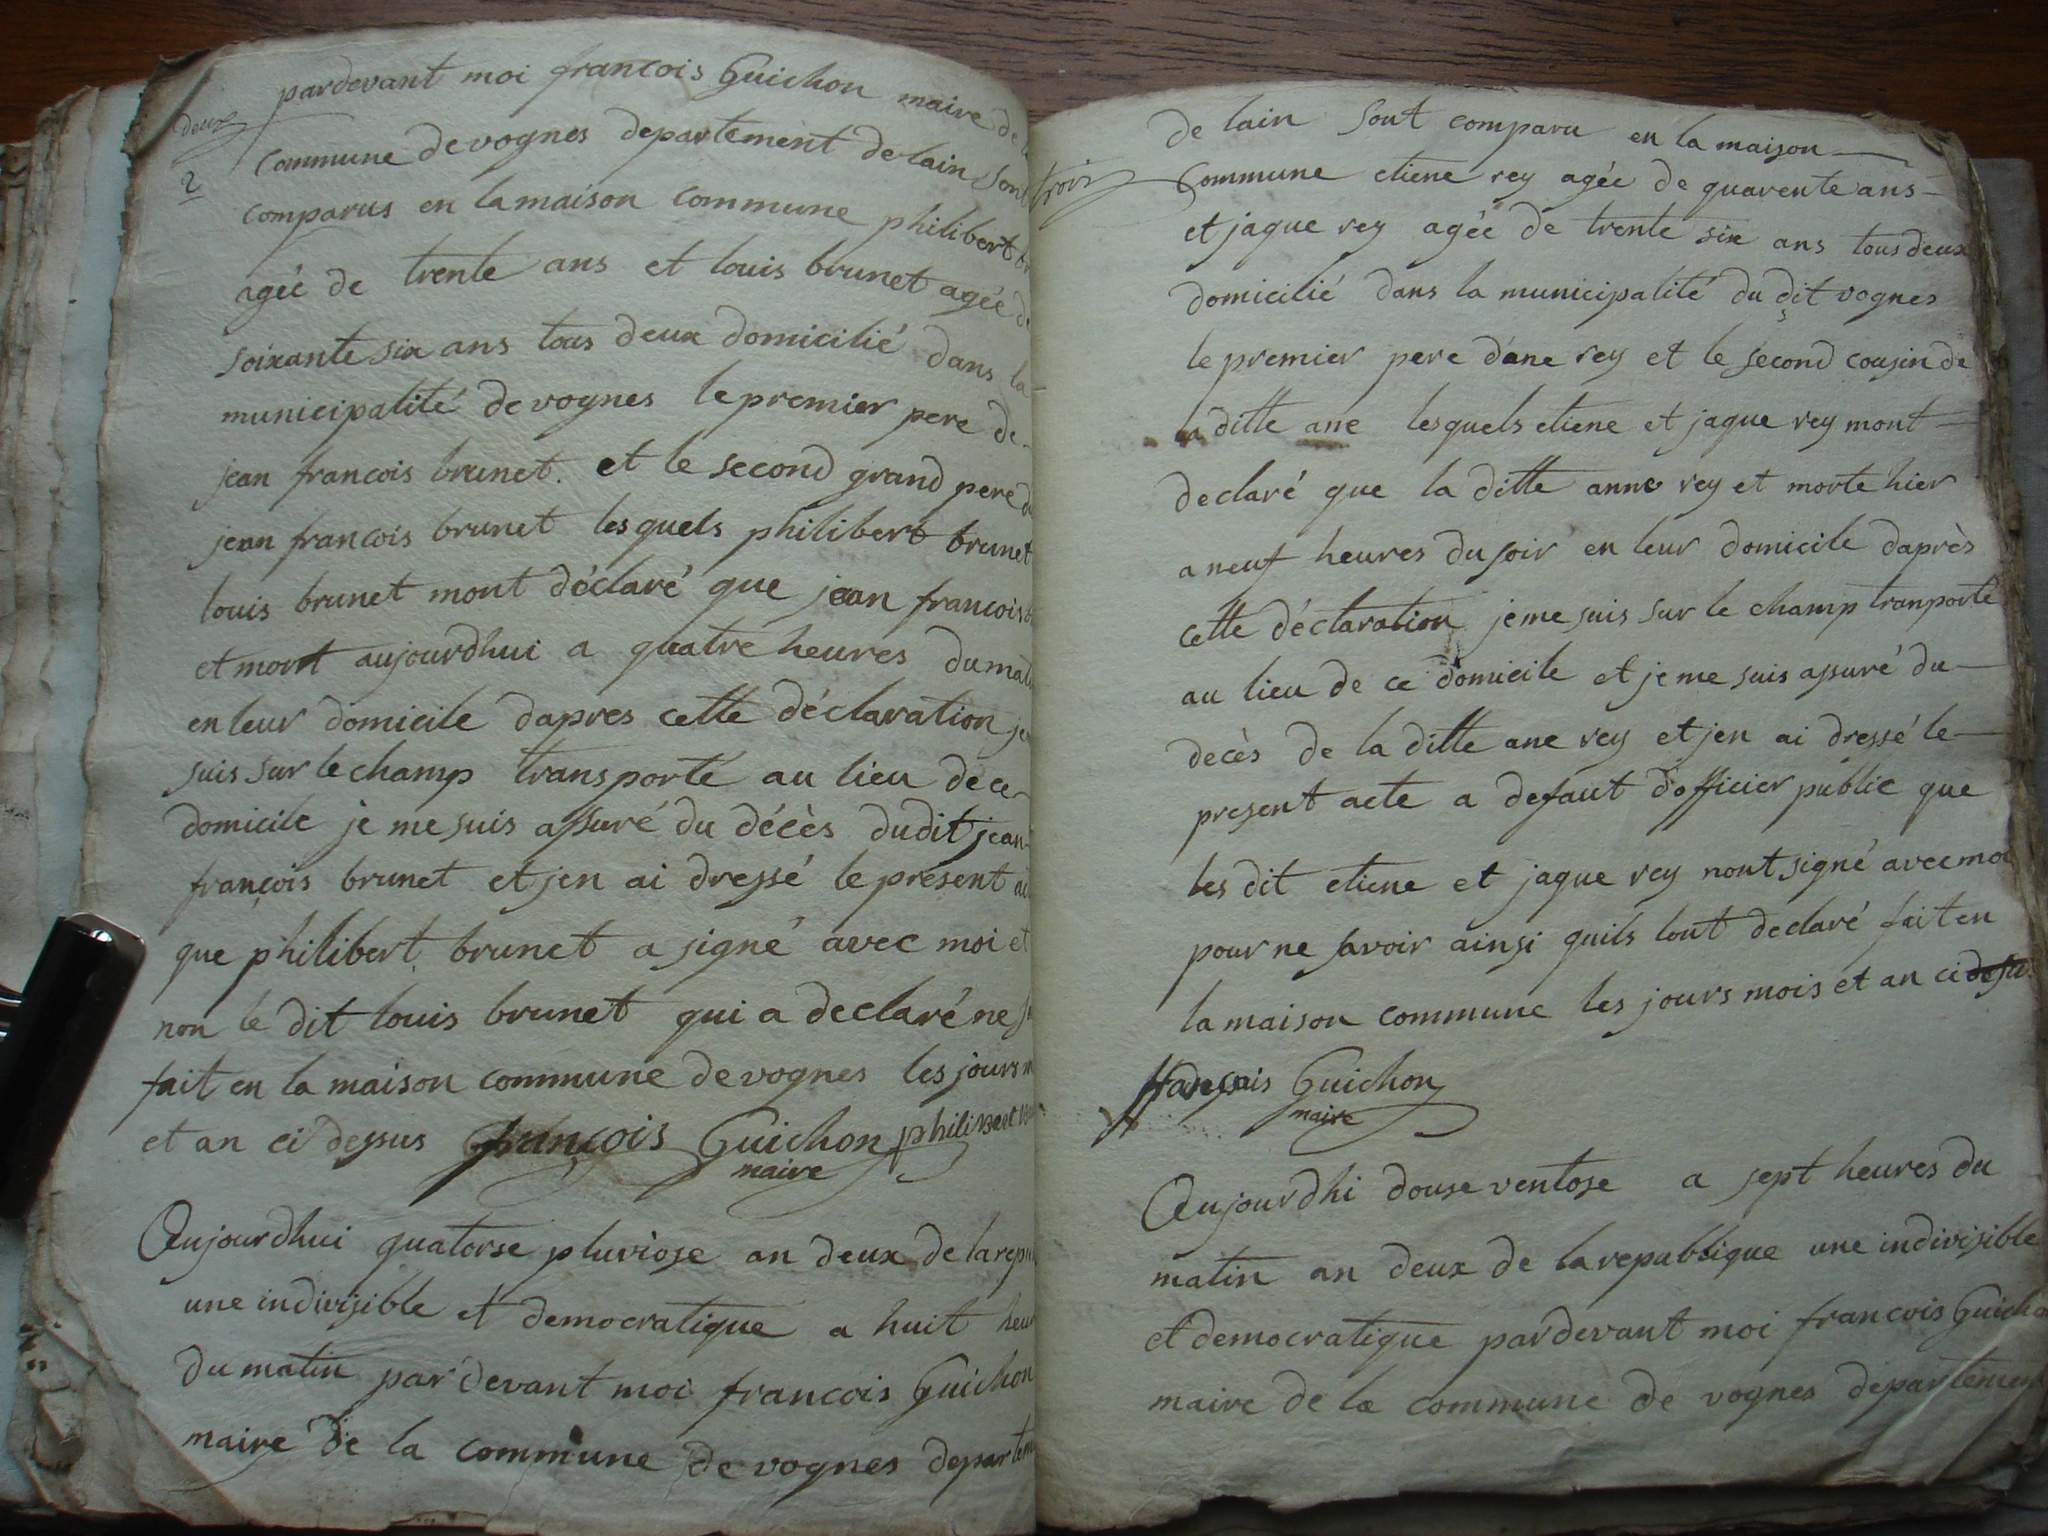 deux
2
pardevant moi francois Guichon maire de
commune de vognes departement de lain sont
comparus en la maison commune philibert
agée de trente ans et louis brunet agée
soixante six ans tous deux domicilié dans la
municipalité de vognes le premier pere de
jean francois brunet. et le second grand pere
jean francois brunet lesquels philibert brunet
louis brunet mont déclaré que jean francois
et mort aujourdhui a quatre heures du mat
en leur domicile dapres cette déclaration je
suis sur le champ transporté au lieu de ce
domicile je me suis assuré du décès dudit jean
françois brunet et jen ai dressé le présent
que philibert brunet a signé avec moi et
non le dit louis brunet qui a declaré ne
fait en la maison commune de vognes les jours
et an ci dessus françois Guichon philibert
maire
Aujourdhui quatorse pluviose an deux de la repu
une indivisible et democratique a huit heur
du matin pardevant moi francois Guichon
maire de la commune de vognes departem
trois
de lain sont comparu en la maison
Commune etiene rey agée de quarente ans
et jaque rey agée de trente six ans tous deux
domicilié dans la municipalité du dit vognes
le premier pere dane rey et le second cousin de
la ditte ane lesquels etiene et jaque rey mont
declaré que la ditte anne rey et morte hier
a neuf heures du soir en leur domicile daprès
cette déclaration je me suis sur le champ tranporté
au lieu de ce domicile et je me suis assuré du
decès de la ditte ane rey et jen ai dressé le
present acte a defaut dofficier public que
les dit etiene et jaque rey nont signé avec moi
pour ne savoir ainsi quils lont declaré fait en
la maison commune les jours mois et an ci dessu
Guichon
maire
Aujourdhi douse ventose a sept heures du
matin an deux de la republique une indivisible
et democratique pardevant moi francois Guicho
maire de la commune de vognes departement